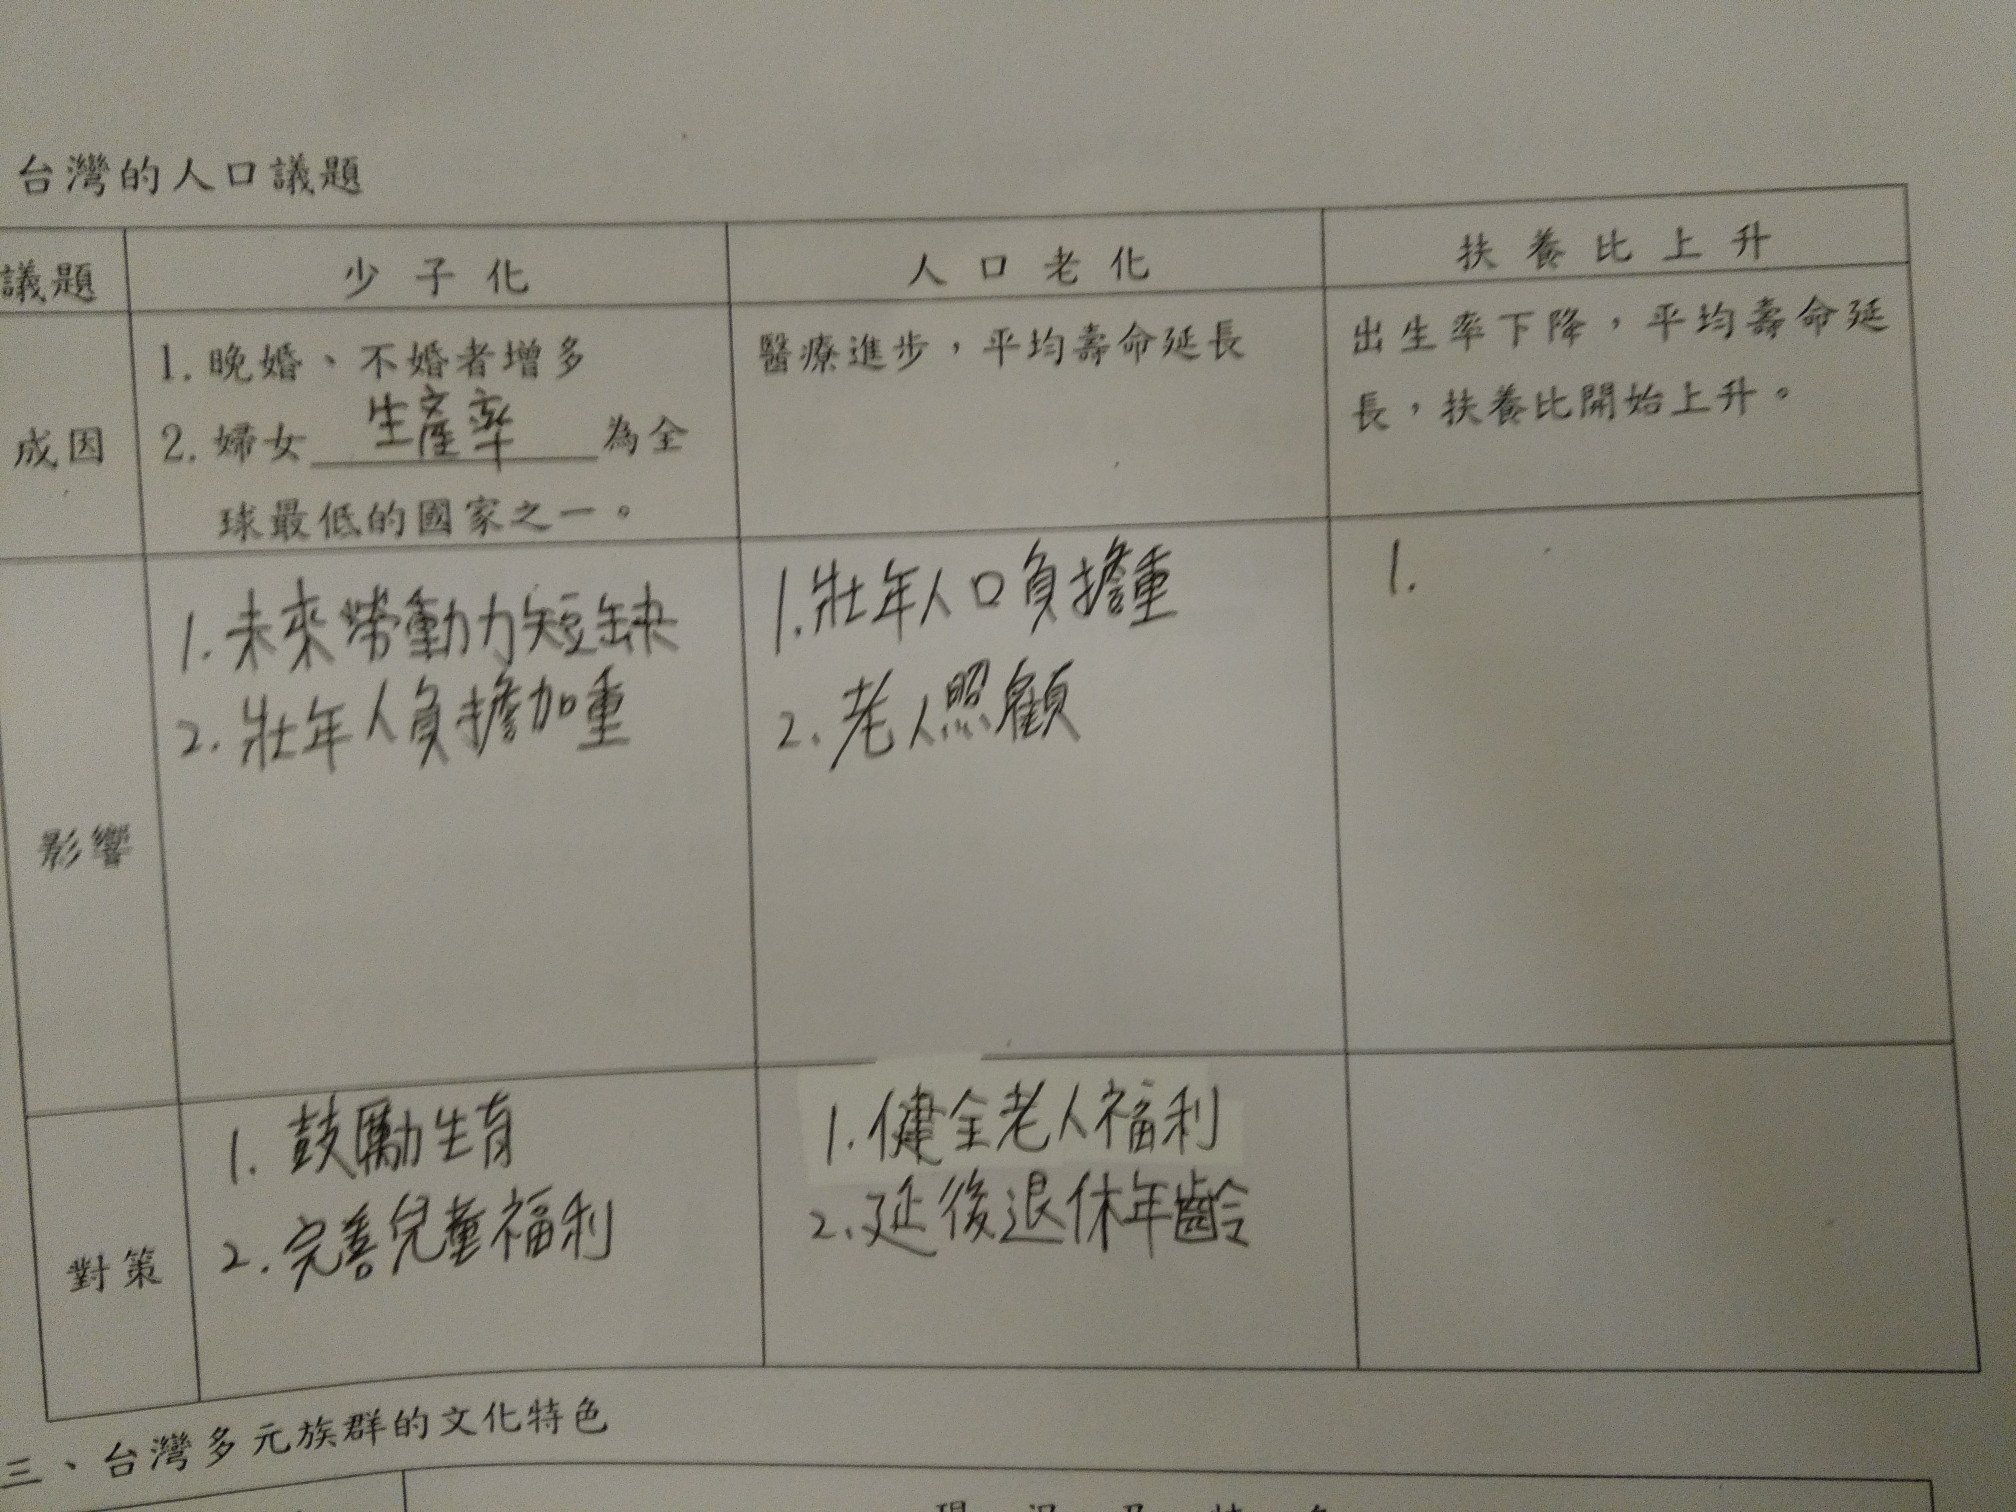 台灣的人口議題
議題
少子化
人口老化
扶養比上升
成因
1. 晚婚、不婚者增多
2. 婦女生產率為全
球最低的國家之一。
醫療進步，平均壽命延長
出生率下降，平均壽命延
長，扶養比開始上升。
影響
1. 未來勞動力短缺
2. 壯年人負擔加重
1. 壯年人口負擔重
2. 老人照顧
1.
對策
1. 鼓勵生育
2. 完善兒童福利
1. 健全老人福利
2. 延後退休年齡
三、台灣多元族群的文化特色